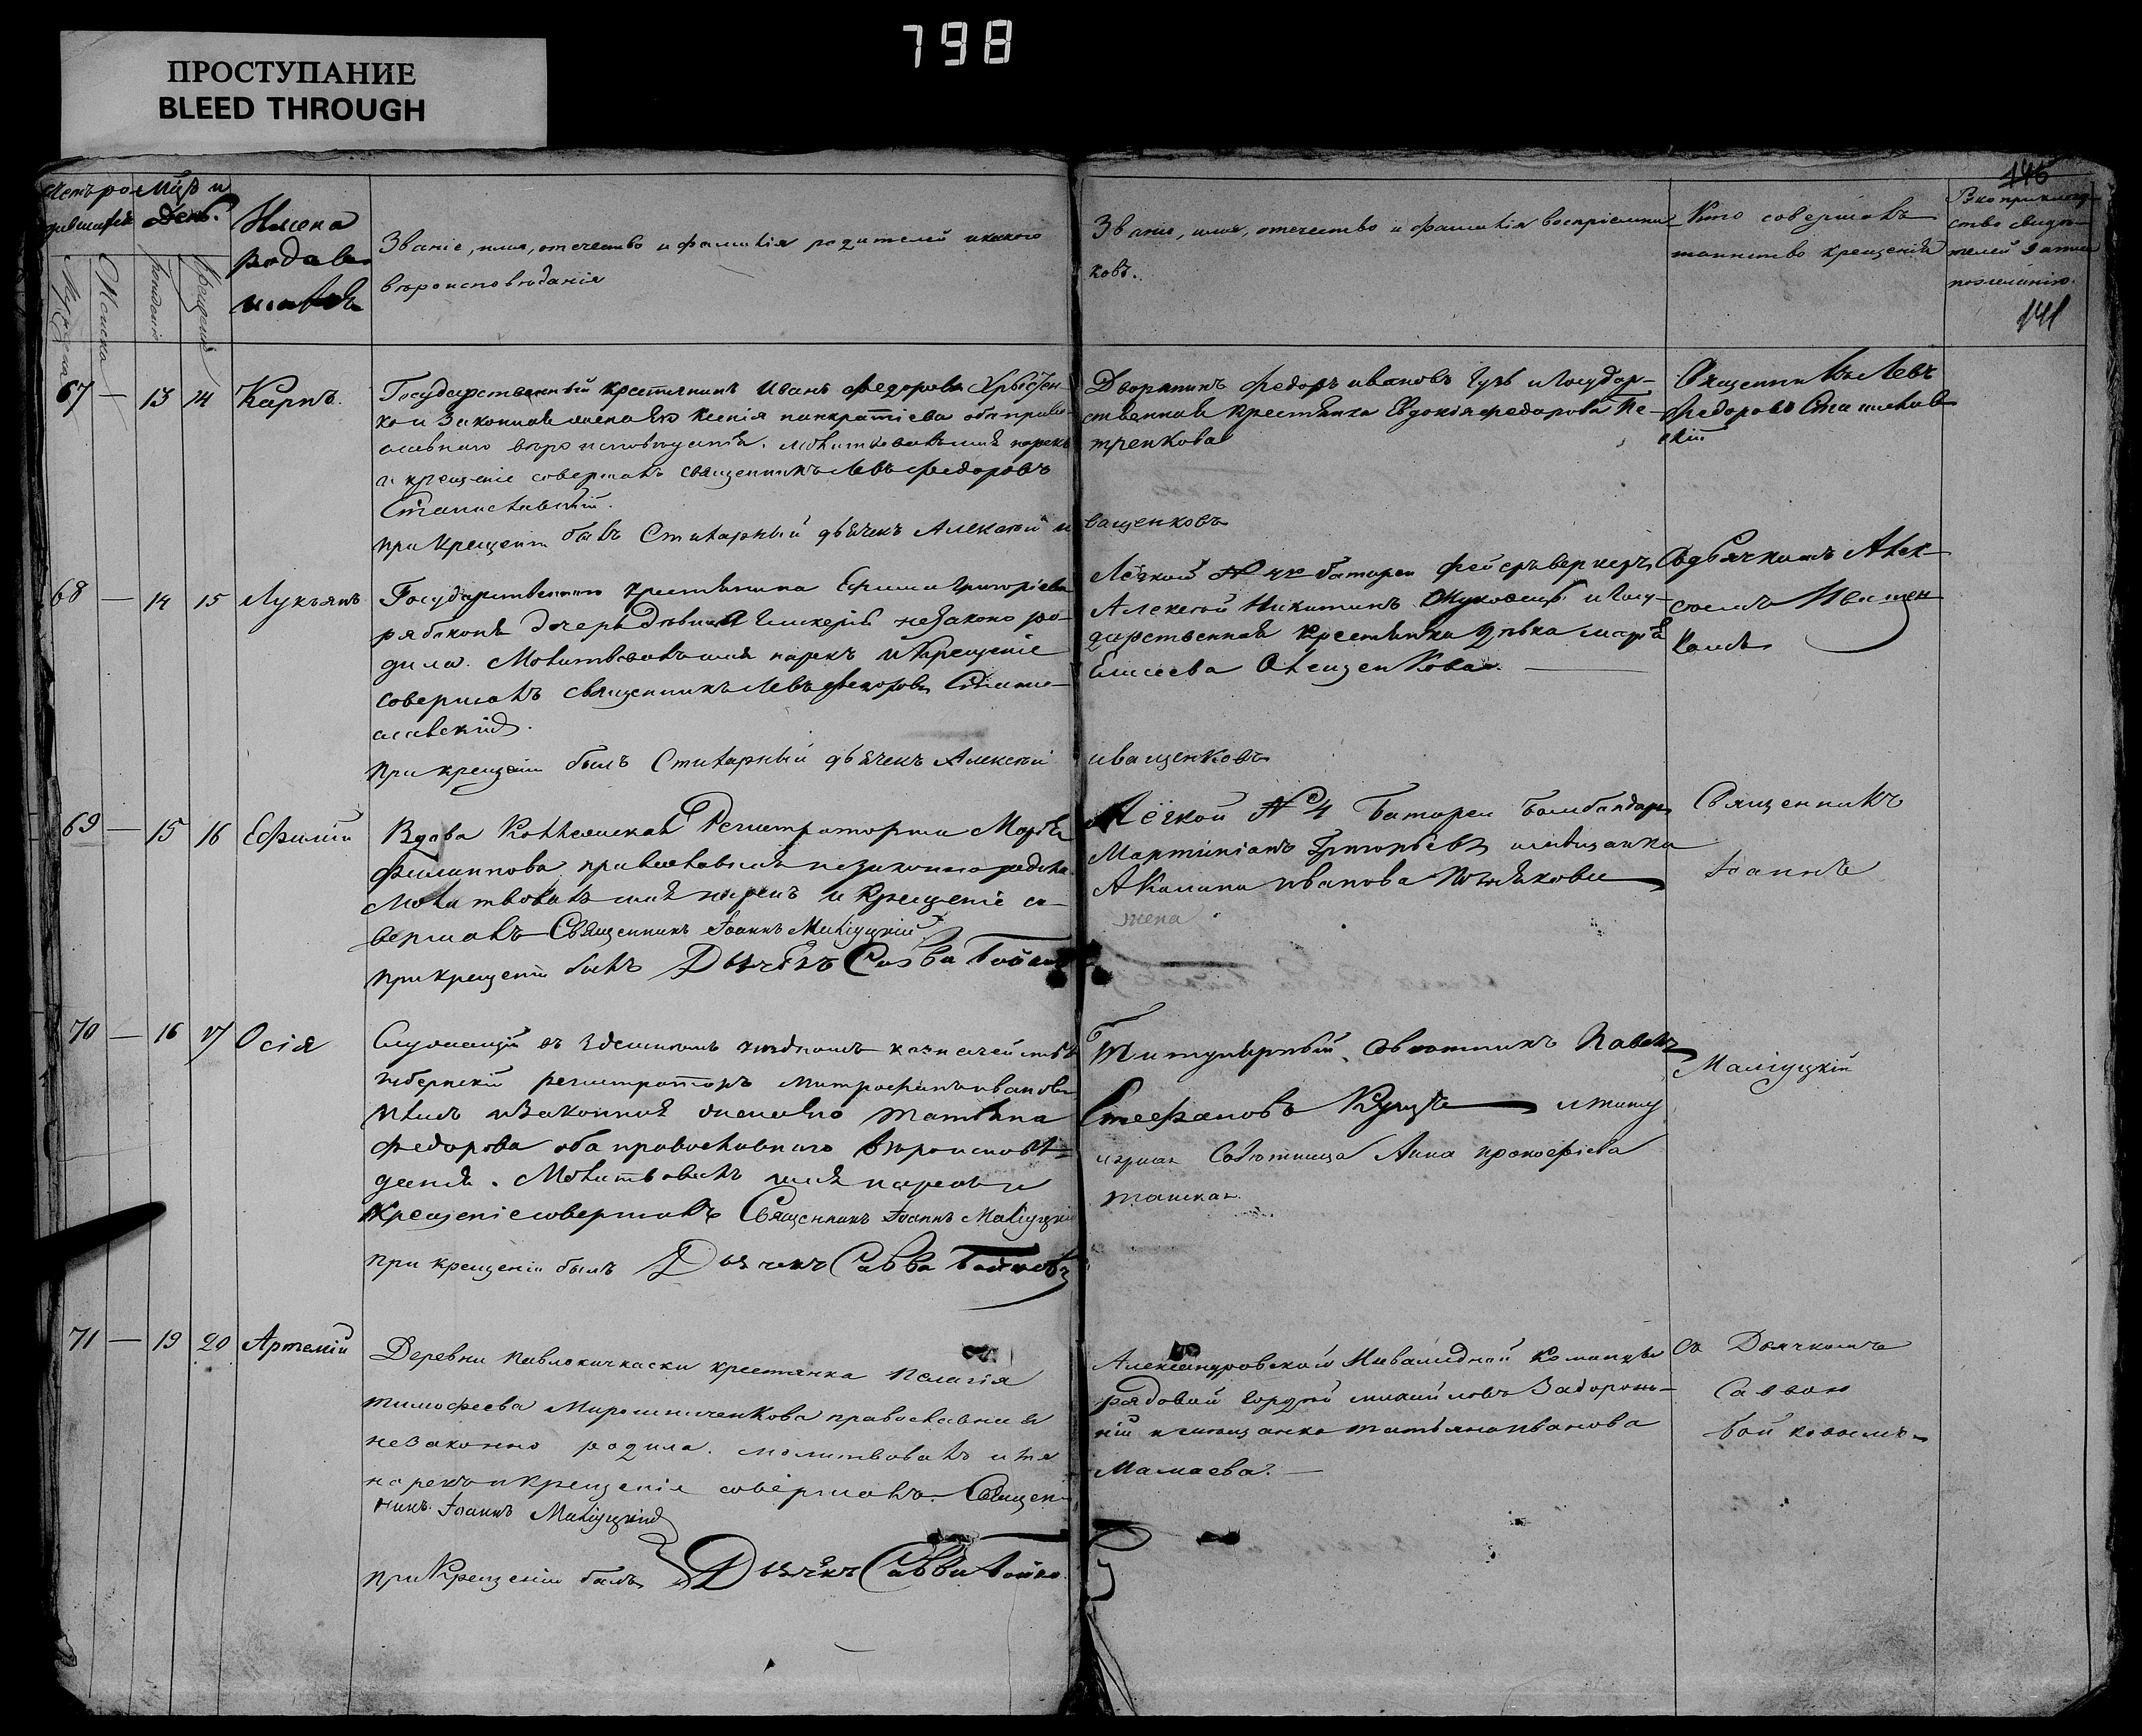 798
ПРОСТУПАНИЕ
BLEED THROUGH
146
141
Счетъ ро
Мцъ и
День.
Имена
родив
Званіе, имя, отечество и фамилія родителей и какого
вѣроисповѣданія
Званіе, имя, отечество и фамилія воспріемни
ковъ.
Кто совершалъ
таинство крещенія
Мужеска
Женска
рожденія
крещенія
67 — 13 14 Карпъ.
Государственный крестьянинъ Иванъ Федоровъ
и законная жена его Ксенія Панкратіева оба право
славнаго вѣроисповѣданія. Молитвовалъ имя нарекъ
и крещеніе совершалъ священникъ Левъ Федоровъ
Станиславскій.
при крещеніи былъ Стихарный дьячекъ Алексѣй и
ващенковъ
Дворянинъ Федоръ Ивановъ и Государ-
ственная крестьянка Евдокія Федорова Пе-
тренкова
Священникъ Левъ
Федоровъ Станислав
скій
68 — 14 15 Лукъянъ
Государственнаго крестьянина Григоріева
дочерь дѣвица незаконо ро-
дила. Молитвовалъ имя нарекъ и крещеніе
совершалъ священникъ Левъ Федоровъ Стани-
славскій.
при крещеніи былъ Стихарный дьячекъ Алексѣй
иващенковъ
Лёгкой № 4й батареи фейерверкеръ
Алексѣй Никитинъ и Госу-
дарственная крестьянка дѣвка Марфа
Елисеева
Съ дьячкомъ Алек-
сѣемъ Иващен
комъ
69 — 15 16 Ефимій
Вдова Коллежская Регистраторша Марфа
Филиппова православная незаконно родила
Молитвовалъ имя нарекъ и крещеніе со-
вершалъ Священникъ Іоаннъ Малiуцкій
при крещеніи былъ Дьячекъ Савва Бойко
Лёгкой № 4 Батареи Бомбандиръ
Мартиніанъ Григорьевъ
Акилина Иванова
жена
Священникъ
Іоаннъ
70 — 16 17 Осія
Служащій въ уѣдномъ казначействѣ
губернскій регистраторъ Митрофанъ Ивановъ
и законная жена его Татьяна
Федорова оба православнаго вѣроисповѣ-
данія. Молитвовалъ имя нарекъ и
крещеніе совершалъ Священникъ Іоаннъ Малiуцкій
при крещеніи былъ Дьячекъ Савва Бойковъ
Титулярный Совѣтникъ Павелъ
Стефановъ и титу
лярная Совѣтница Анна Прокофіева
Малiуцкій
71 — 19 20 Артемій
Деревни Павлокичкаски крестянка Пелагія
Тимофеева Мирошниченкова православная
незаконно родила. Молитвовалъ имя
нарекъ и крещеніе совершалъ. Священ-
никъ Іоаннъ Малiуцкій
при крещеніи былъ Дьячекъ Савва Бойко
Александровской Инвалидной Команды
рядовой Гордѣй Михайловъ Задорож-
ній и мещанка Татьяна Иванова
Мамаева. —
Съ Дьячкомъ
Саввою
Бойковымъ